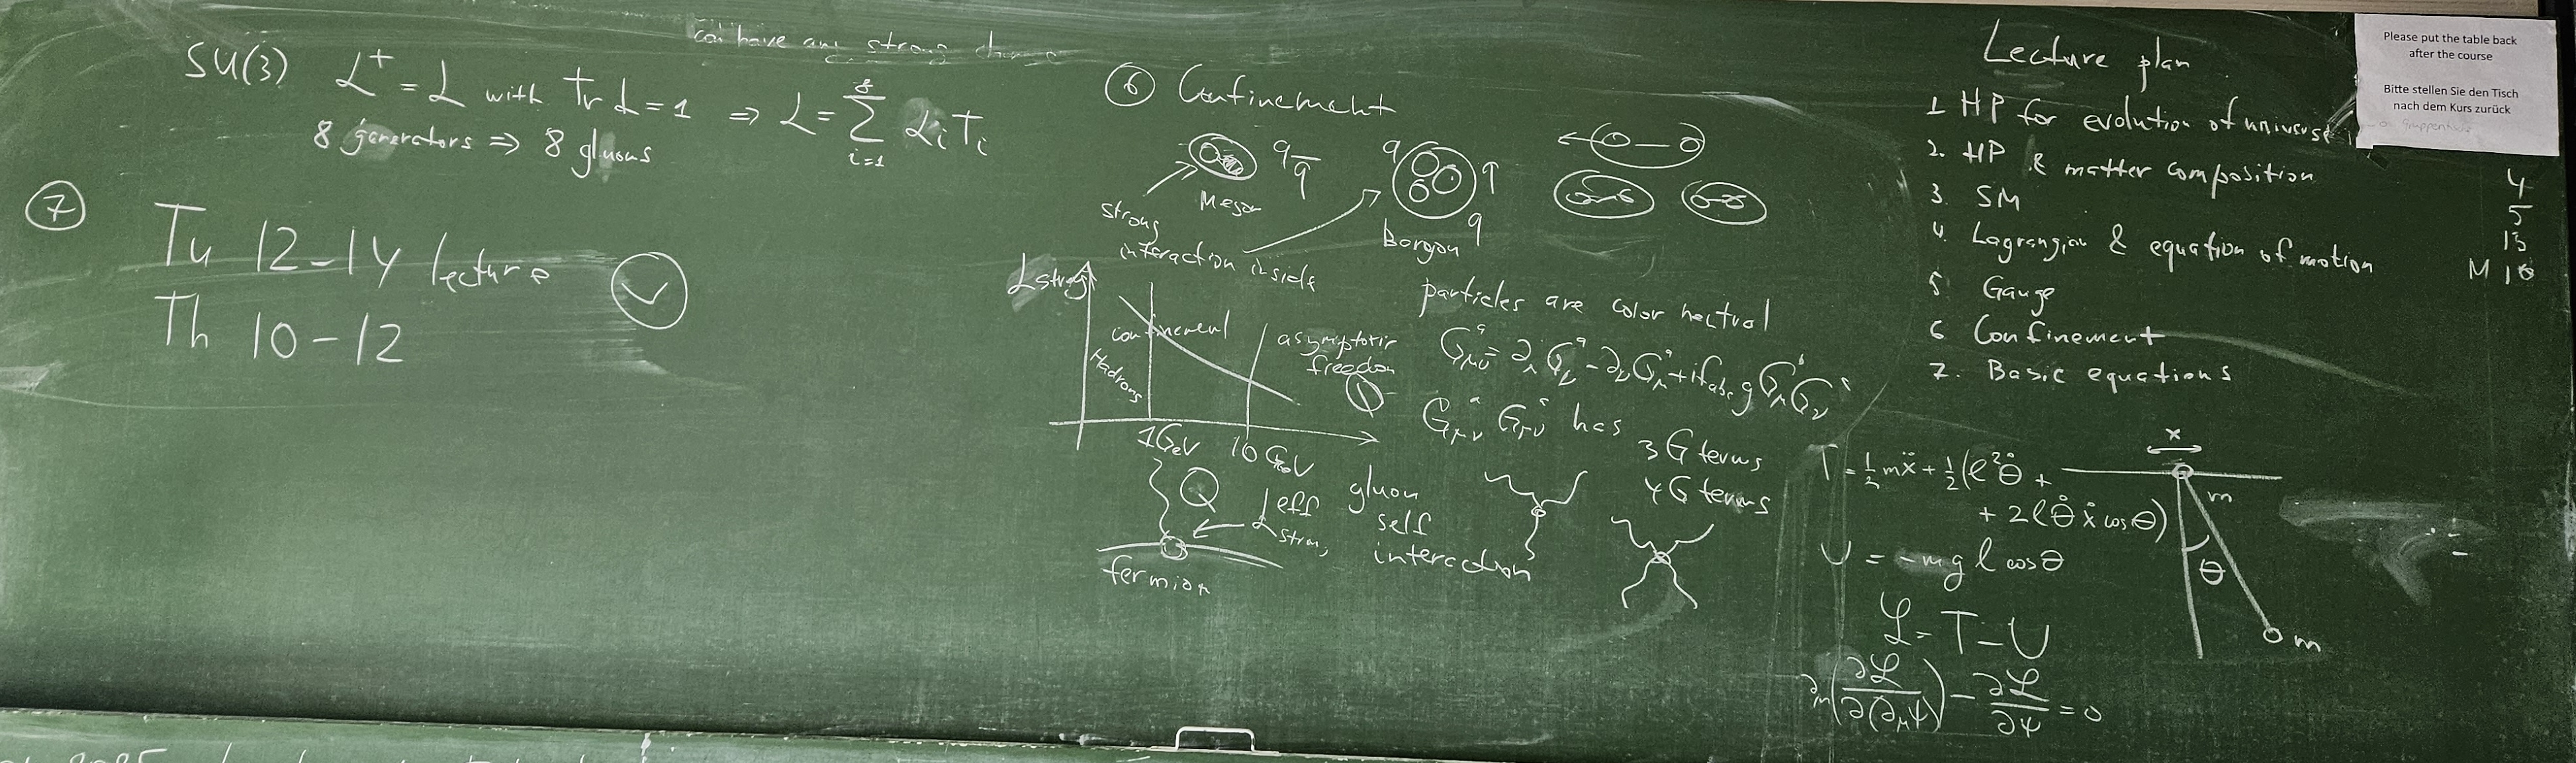 can have any strong
SU(3) L⁺ = L with Tr L = 1 ⇒ L = Σ_{i=1}^{8} α_i T_i
8 generators ⇒ 8 gluons
⑦
Tu 12-14 lecture
Th 10-12
⑥ Confinement
q q̅
Meson
q q q
Baryon
strong
interaction inside
particles are color neutral
α strong
confinement
Hadrons
asymptotic
freedom
Q
1 GeV 10 GeV
G^a_{μν} = ∂_μ G^a_ν - ∂_ν G^a_μ + i f_{abc} g G^b_μ G^c_ν
G^a_{μν} G^a_{μν} has
3 G terms
4 G terms
Q
α eff strong
fermion
gluon
self
interaction
Lecture plan
1 HP for evolution of universe
2. HP & matter composition
3. SM
4. Lagrangian & equation of motion
5. Gauge
6 Confinement
7. Basic equations
4
5
13
M 16
T = 1/2 mẍ + 1/2 (ℓ² θ̇ +
+ 2ℓ θ̇ ẋ cos θ)
U = -mg ℓ cos θ
ℒ = T - U
∂_μ (∂ℒ/∂(∂_μ ψ)) - ∂ℒ/∂ψ = 0
x
m
θ
m
Please put the table back
after the course
Bitte stellen Sie den Tisch
nach dem Kurs zurück